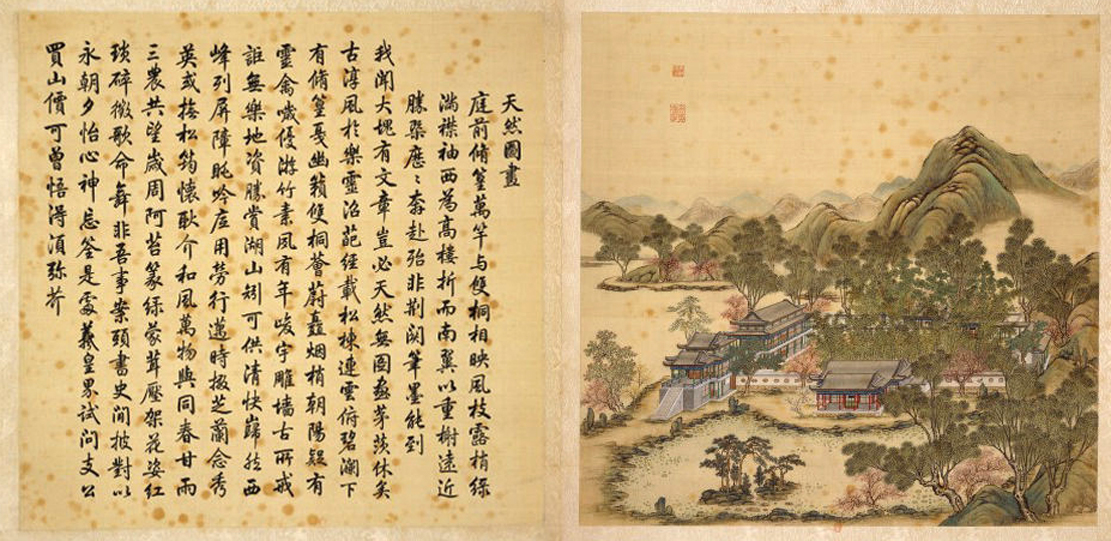 天然圖畫
庭前脩篁萬竿与雙桐相映風枝露梢綠
滿襟袖西為高樓折而南翼以重榭遠近
勝槩歷々奔赴殆非荊関筆墨能到
我聞大塊有文章豈必天然無圖畫茅茨休矣
古淳風於樂靈沼葩經載松棟連雲俯碧瀾下
有脩篁戛幽籟雙桐薈蔚矗烟梢朝陽疑有
靈禽噦優游竹素夙有年峻宇雕墻古所戒
詎無樂地資勝賞湖山矧可供清快巋然西
峰列屏障眺吟底用勞行邁時掇芝蘭念秀
英或撫松筠懷耿介和風萬物與同春甘雨
三農共望歲周阿苔篆綠蒙茸壓架花姿紅
瑣碎徵歌命舞非吾事案頭書史閒披對以
永朝夕怡心神忘筌是處羲皇界試問支公
買山價可曾悟得須彌芥